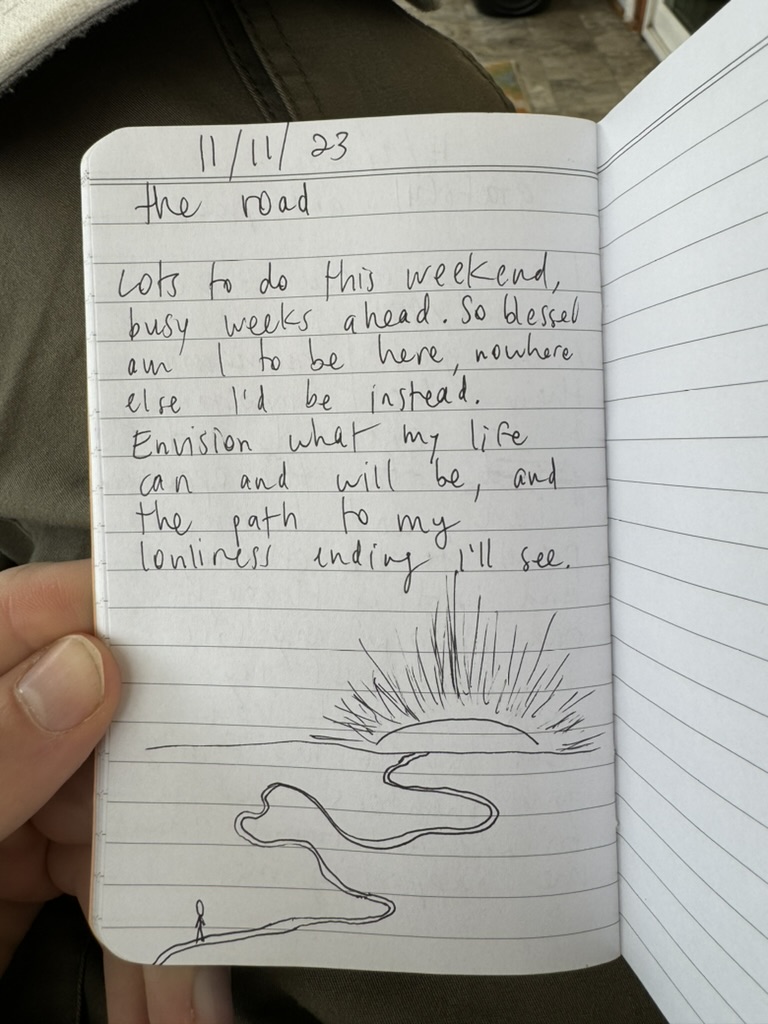 11/11/23
the road
Lots to do this weekend,
busy weeks ahead. So blessed
am I to be here, nowhere
else I'd be instead.
Envision what my life
can and will be, and
the path to my
lonliness ending I'll see.